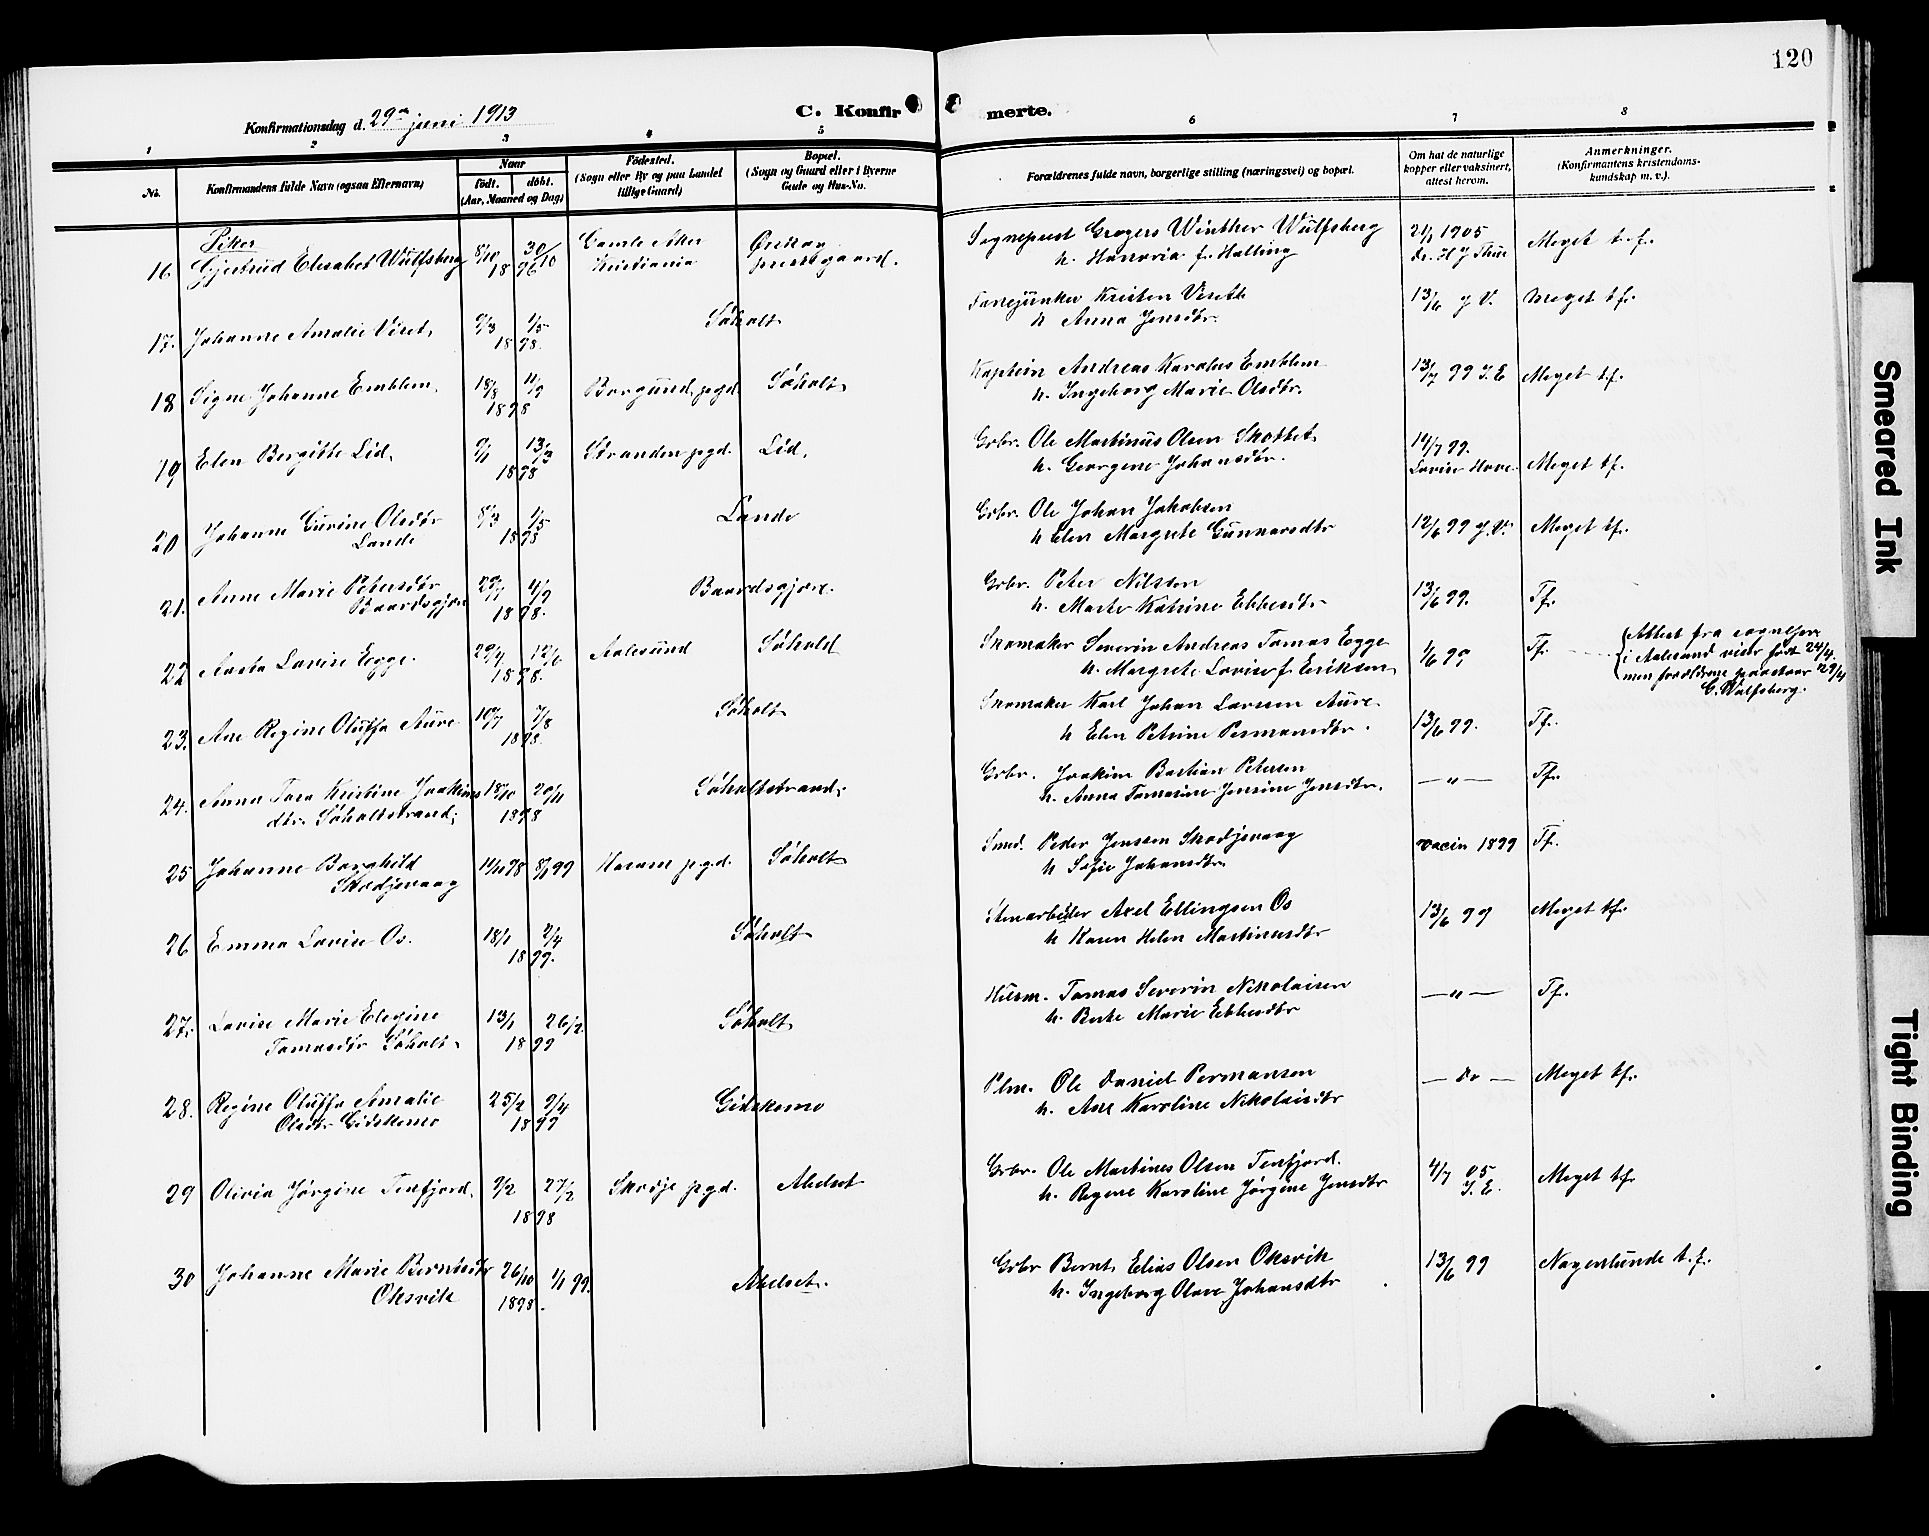 120
Konfirmationsdag d. 29de juni 1913
C. Konfirmerte.
1 2 3 4 5 6 7 8
No.
Konfirmandens fulde Navn (ogsaa Efternavn)
Naar
født. døbt.
(Aar, Maaned og Dag)
Fødested.
(Sogn eller By og paa Landet
tillige Gaard)
Bopæl.
(Sogn og Gaard eller i Byerne
Gade og Hus-No.
Forældrenes fulde navn, borgerlige stilling (næringsvei) og bopæl.
Om hat de naturlige
kopper eller vaksinert,
attest herom.
Anmerkninger.
(Konfirmantens kristendoms-
kundskap m. v.).
Piker
16 Gjertrud Elisabet Wulfsberg 8/10 30/10 1896 Gamle Aker Kristiania Ørskog prestegaard. Sogneprest Gregers Winther Wulfsberg
h. Hanna f. Halling 21/1 1905 Meget t. f.
17. Johanne Amalie Viset. 9/3 1/5 1898. Søholt
h Anna Jensdtr. 13/6 J V. Meget tf.
18 Signe Johanne Emblem. 18/8 11/9 1898 Borgund pgd Søholt Kaptein Andreas Karolus Emblem
h. Ingeborg Marie Olsdtr. 13/7 99 I. E Meget tf.
19 Elen Bergitte Lid. 9/1 13/3 1898 Stranden pgd. Lid. Grbr. Ole Martinus Olsen Skottet
h. Georgene Johansdtr. 14/7 99. Lovise Hove Meget tf.
20 Johanne Gurine Olsdtr Lande 8/3 1/5 1898 Lande Grbr. Ole Johan Jakobsen
h Elen Margrete Gunnarsdtr 12/6 99 J. V. Meget tf.
21. Anne Marie Petersdtr Baardsgjære 29/7 4/9 1898. Baardsgjære. Grbr. Peter Nilssen
h. Marte Katrine Ebbesdtr 13/6 99. Tf.
22 Aasta Lovise Egge. 29/4 12/6 1898. Aalesund Søhold Skomaker Severin Andreas Tomas Egge
h. Margrete Lovise f. Eriksen Tf.
Attest fra sognepr.
i Aalesund viser født 24/4.
men forældrene paastaar 29/4
G. Wulfsberg.
23. Ane Regine Oluffa Aure 10/7 7/8 1898. Søholt Skomaker Karl Johan Larssen Aure
h Elen Petrine Permansdtr. 13/6 99. Tf.
24. Anna Tora Kristine Joakims
dtr. Søholtstrand. 18/10 20/11 1898 Søholtstrand. Grbr. Joakim Bastian Petersen
h. Anna Tomasine Jensine Jensdtr. — " — Tf.
25 Johanne Borghild Skodjevaag 11/11 98 8/1 99 Haram pgd. Søholt Smed. Peder Jenssen Skodjevaag
h Sofie Johansdtr. vaccin 1899 Tf.
26 Emma Lovise Os. 18/1 2/4 1899. Søholt Stenarbeider Axel Ellingsen Os
h Karen Helen Martinusdtr 13/6 99 Meget tf.
27. Lovise Marie Elegine
Tomasdtr Søholt 13/1 26/2 1899 Søholt Husm. Tomas Severin Nikolaisen
h. Berte Marie Ebbesdtr — " — Tf.
28. Regine Oluffa Amalie
Olsdtr Gidskemo 25/2 2/4 1899 Gidskemo Plm. Ole Daniel Permansen
h. Ane Karoline Nikolaisdtr — Do — Meget tf.
29 Olivia Jørgine Tenfjord. 9/2 27/2 1898 Skodje pgd. Abelset Grbr. Ole Martines Olsen Tenfjord.
h. Regine Karoline Jørgine Jensdtr 4/7 05 I. E. Meget tf.
30 Johanne Marie Berntsdtr
Oksvik 26/10 1898. 1/1 99. Abelset. Grbr Bernt Elias Olsen Oksvik
h. Ingeborg Olave Johansdtr 13/6 99 Nogenlunde t. f.
Smeared Ink
Tight Binding